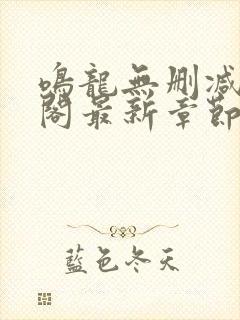 鳴龍無刪減
閣最新章節
藍色冬天